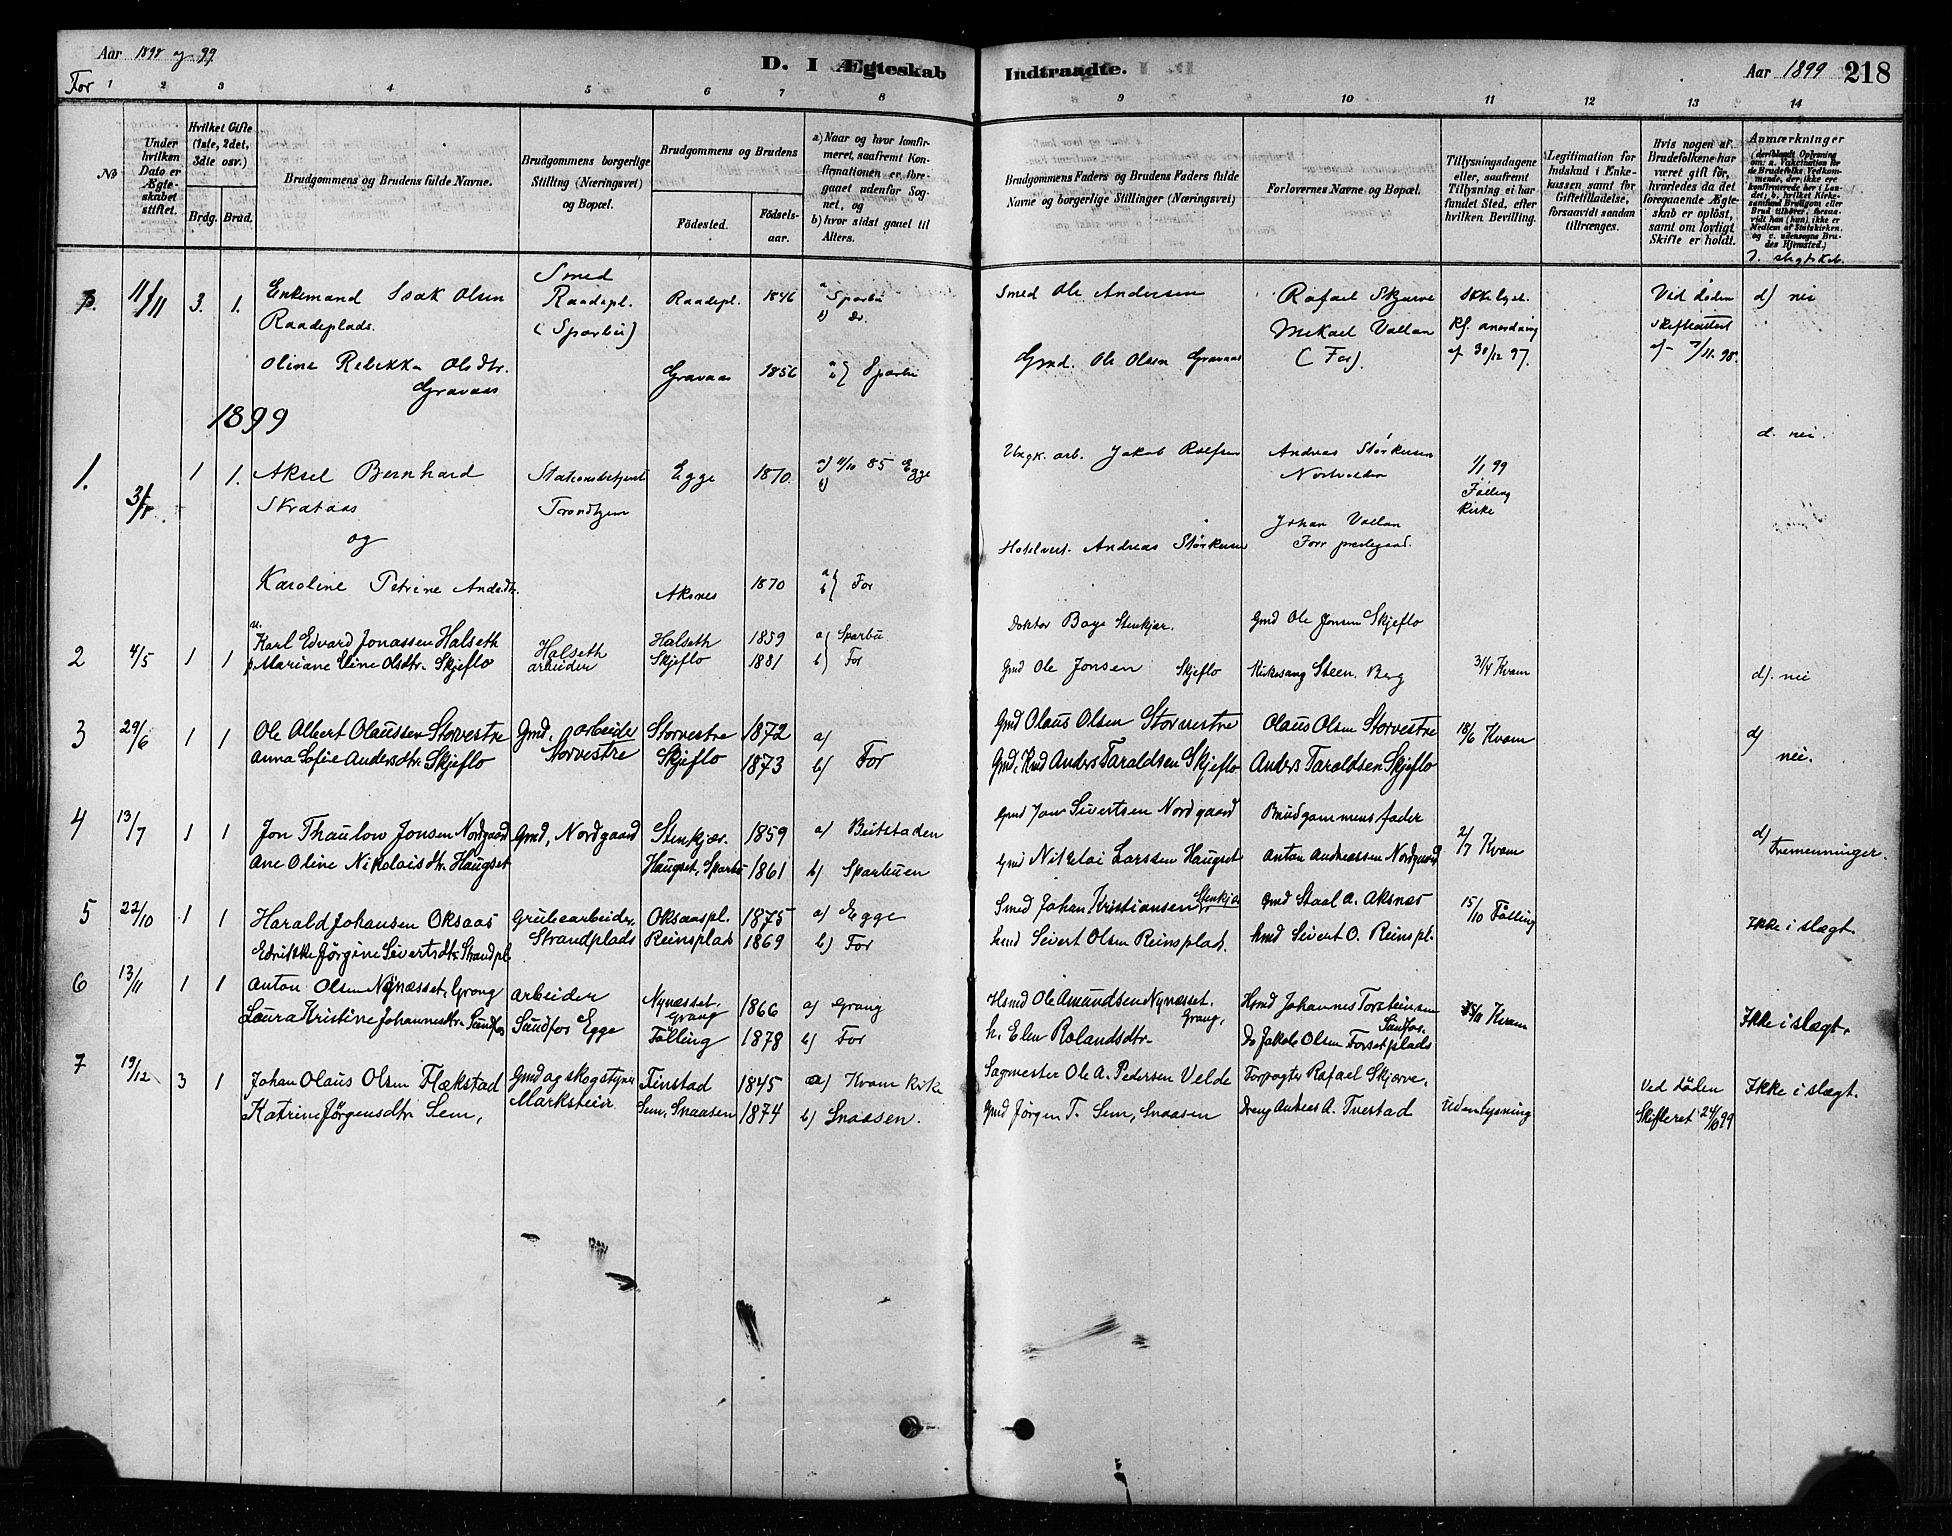 Aar 1898 og 99
For
D. I Ægteskab Indtraadte.
Aar 1899 218
1 2 3 4 5 6 7 8 9 10 11 12 13 14
No
Under hvilken Dato er Ægteskabet stiftet.
Hvilket Gifte (1ste, 2det, 3die osv.)
Brdg. Brud.
Brudgommens og Brudens fulde Navne.
Brudgommens borgerlige Stilling (Næringsvei) og Bopæl.
Brudgommens og Brudens
Fødested. Fødselsaar.
a) Naar og hvor konfirmeret, saafremt Konfirmationen er foregaaet udenfor Sognet, og
b) hvor sidst gaaet til Alters.
Brudgommens Faders og Brudens Faders fulde Navne og borgerlige Stillinger (Næringsvei)
Forlovernes Navne og Bopæl.
Tillysningsdagene eller, saafremt Tillysning ei har fundet Sted, efter hvilken Bevilling.
Legitimation for Indskud i Enkekassen samt for Giftetilladelse, forsaavidt saadan tiltrænges.
Hvis nogen af Brudefolkene har været gift før, hvorledes da det foregaaende Ægteskab er opløst, samt om lovligt Skifte er holdt.
Anmærkninger
(deriblandt Oplysning om: a. Vakcination for de Brudefolks Vedkommende, der ikke ere konfirmerede her i Landet; b. hvilket Kirkesamfund Brudgom eller Brud tilhører, forsaavidt han (hun) ikke er Medlem af Statskirken, og c. udensogns Brudes Hjemsted.)
d. slegtskab.
11/11 3. 1. Enkemand Isak Olsen Raadeplads. Smed Raadepl. (Sparbu) Raadepl. 1846 a) Sparbu b) Do. Smed Ole Andersen Rafael Skjerve Mikael Vallan (For). Ikke lyst. Kf. anordning af 30/12 97. Ved døden skifteattest af 7/11 98. d) nei
Oline Rebekka Olsdtr. Gravaas Gravaas 1856 a b} Sparbu Gmd. Ole Olsen Gravaas
1899
1. 1 1. Aksel Bernhard Skrataas Stationsbetjent Trondhjem Egge 1870. a) 4/10 85 Egge b) Jakob Rolfsen Andreas Størkersen 1/1 99 Følling Kirke d. nei.
og
Karoline Petrine Andr.dtr. Aksnes 1870 a b} For Hotelvert. Andreas Størkersen Johan Vallan Forr prestegaard.
2 4/5 1 1 u. Karl Edvard Jonassen Halseth Halseth arbeider Halseth 1859 a) Sparbu Doktor Baye Stenkjær. Gmd Ole Jonsen Skjeflo
p. Mariane Eline Olsdtr. Skjeflo Skjeflo 1881 b) For Gmd Ole Jonsen Skjeflo Kirkesang Steen. Berg Kvam d). nei
3 29/6 1 1 Ole Albert Olaussen Storvestre Gmd, arbeider Storvestre Storvestre 1872 a) Gmd Olaus Olsen Storvestre Olaus Olsen Storvestre 18/6 Kvam d) nei.
Anna Sofie Andersdtr. Skjeflo Skjeflo 1873 b) For Gmd, Kmd Anders Taraldsen Skjeflo Anders Taraldsen Skjeflo
4 13/7 1 1 Jon Thaulow Jonsen Nordgaard Gmd, Nordgaard Stenkjær. 1859 a) Beitstaden Gmd Jon Sivertsen Nordgaard Brudgommens fader 2/7 Kvam d) Tremenninger.
Ane Oline Nikolaisdtr. Haugset Haugset, Sparbu 1861 b) Sparbuen Gmd Nikolai Larssen Haugset Anton Andreassen Nordgaard
5 22/10 1 1 Harald Johansen Oksaas Grubearbeider, Strandplads Oksaaspl. 1875 a) Egge Smed Johan Kristiansen, Stenkjær Gmd Staal A. Aksnes 15/10 Følling Ikke i slægt.
Jørgine Sivertsdtr. Strandpl. Reinsplads 1869 b) For Hmd Sivert Olsen Reinsplads. Hmd Sivert O. Reinspl.
6 13/11 1 1 Anton Olsen Nynæsset, Grong arbeider Sundfos Egge Nynæsset, Grong 1866 a) Grong Hsmd Ole Amundsen Nynæsset, Grong, Hsmd Johannes Torsteinsen Sundfos. Kvam Ikke i slægt.
Laura Kristine Johannesdtr. Sundfos Følling 1878 b) For h. Elen Rolandsdtr. Do Jakob Olsen Forsetplads
7 19/12 3 1 Johan Olaus Olsen Flækstad Gmd og skogstyrer Marksteir Finstad 1845 a) Kvam kirk Sagmester Ole A. Pedersen Velde Forpagter Rafael Skjærve, Ved døden Ikke i slægt.
Katrine Jørgensdtr. Sem, Sem, Snaasen 1874 b) Snaasen. Gmd Jørgen T. Sem, Snaasen Dreng Andreas A. Tvestad Uden lysning Skifteret 24/6 99